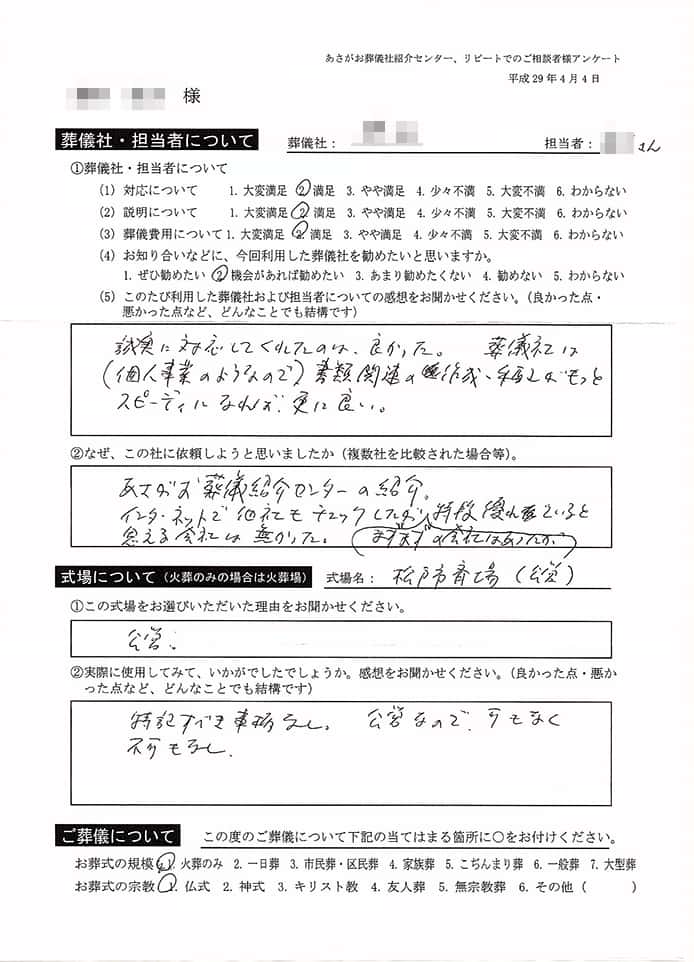 あさがお葬儀社紹介センター、リピートでのご相談者様アンケート
平成29年4月4日
様
葬儀社・担当者について 葬儀社: 担当者: さん
①葬儀社・担当者について
(1) 対応について 1.大変満足 2.満足 3.やや満足 4.少々不満 5.大変不満 6.わからない
(2) 説明について 1.大変満足 2.満足 3.やや満足 4.少々不満 5.大変不満 6.わからない
(3) 葬儀費用について 1.大変満足 2.満足 3.やや満足 4.少々不満 5.大変不満 6.わからない
(4) お知り合いなどに、今回利用した葬儀社を勧めたいと思いますか。
1.ぜひ勧めたい 2.機会があれば勧めたい 3.あまり勧めたくない 4.勧めない 5.わからない
(5) このたび利用した葬儀社および担当者についての感想をお聞かせください。(良かった点・
悪かった点など、どんなことでも結構です)
誠実に対応してくれたのは、良かった。 葬儀社は
(個人事業のようなので)書類関連の作成、手直しがもっと
スピーディになれば、更に良い。
②なぜ、この社に依頼しようと思いましたか(複数社を比較された場合等)。
あさがお葬儀紹介センターの紹介。
インターネットで他社もチェックしたが、特段優れていると
思える会社は無かった。(まずまずの会社はあったが)
式場について(火葬のみの場合は火葬場) 式場名: 松戸市斉場(公営)
①この式場をお選びいただいた理由をお聞かせください。
公営。
②実際に使用してみて、いかがでしたでしょうか。感想をお聞かせください。(良かった点・悪か
った点など、どんなことでも結構です)
特記すべき事項なし。 公営なので、可もなく
不可もなし。
ご葬儀について この度のご葬儀について下記の当てはまる箇所に○をお付けください。
お葬式の規模 1.火葬のみ 2.一日葬 3.市民葬・区民葬 4.家族葬 5.こぢんまり葬 6.一般葬 7.大型葬
お葬式の宗教 1.仏式 2.神式 3.キリスト教 4.友人葬 5.無宗教葬 6.その他( )